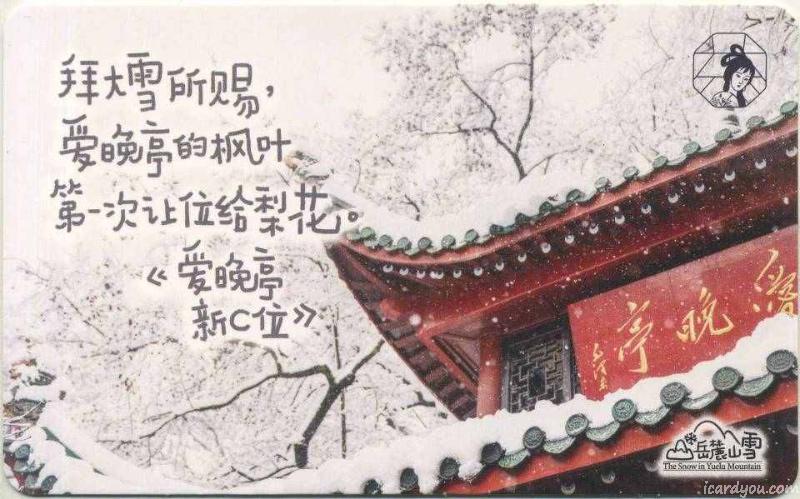 拜大雪所赐，
爱晚亭的枫叶
第一次让位给梨花。
《爱晚亭
新C位》
爱晚亭
毛泽东
岳麓山雪
The Snow in Yuelu Mountain
icardyou.com